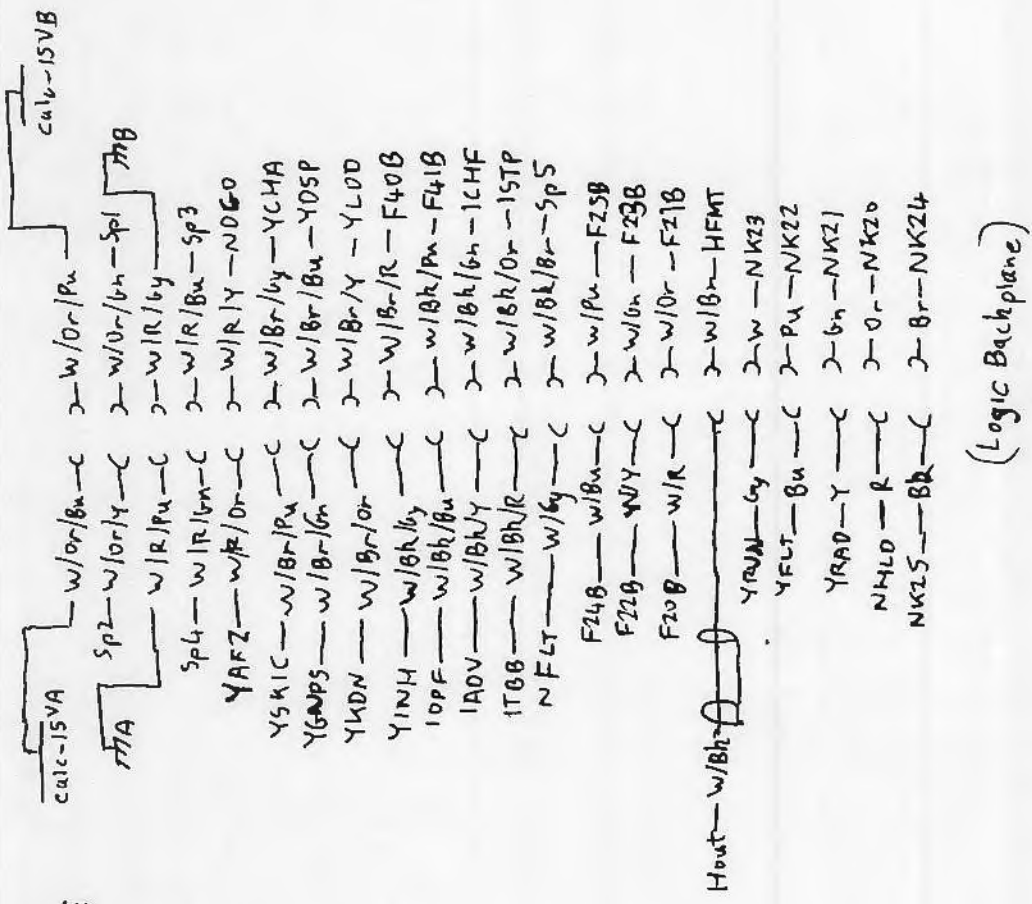 calc-15VA calc-15VB
W/Or/Bu W/Or/Pu
Sp2 W/Or/Y W/Or/Gn Sp1
A W/R/Pu W/R/Gy B
Sp4 W/R/Gn W/R/Bu Sp3
YAFZ W/R/Or W/R/Y NOGO
YSKIC W/Br/Pu W/Br/Gy YCHA
YGNPS W/Br/Gn W/Br/Bu YDSP
YKDN W/Br/Or W/Br/Y YLOD
YINH W/Bk/Gy W/Br/R F40B
IOPF W/Bk/Bu W/Bk/Pu F41B
IADV W/Bk/Y W/Bk/Gn ICHF
ITBB W/Bk/R W/Bk/Or ISTP
NFLT W/Gy W/Bk/Br Sp5
F24B W/Bu W/Pu F25B
F22B W/Y W/Gn F23B
F20B W/R W/Or F21B
Hout W/Bk W/Br HFMT
YRUN Gy W NK23
YFLT Bu Pu NK22
YRAD Y Gn NK21
NHLD R Or NK20
NK25 Bk Br NK24
(Logic Backplane)